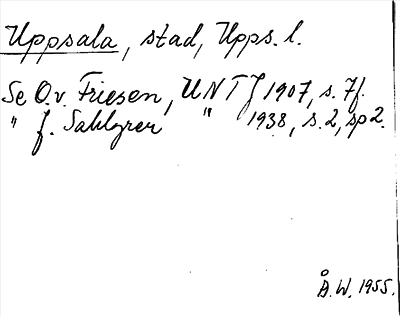 Uppsala, stad, Upps. l.
Se O.v. Friesen, UNT J 1907, s. 7f.
" J. Sahlgren " 1938, s. 2, sp 2.
Å.W. 1955.